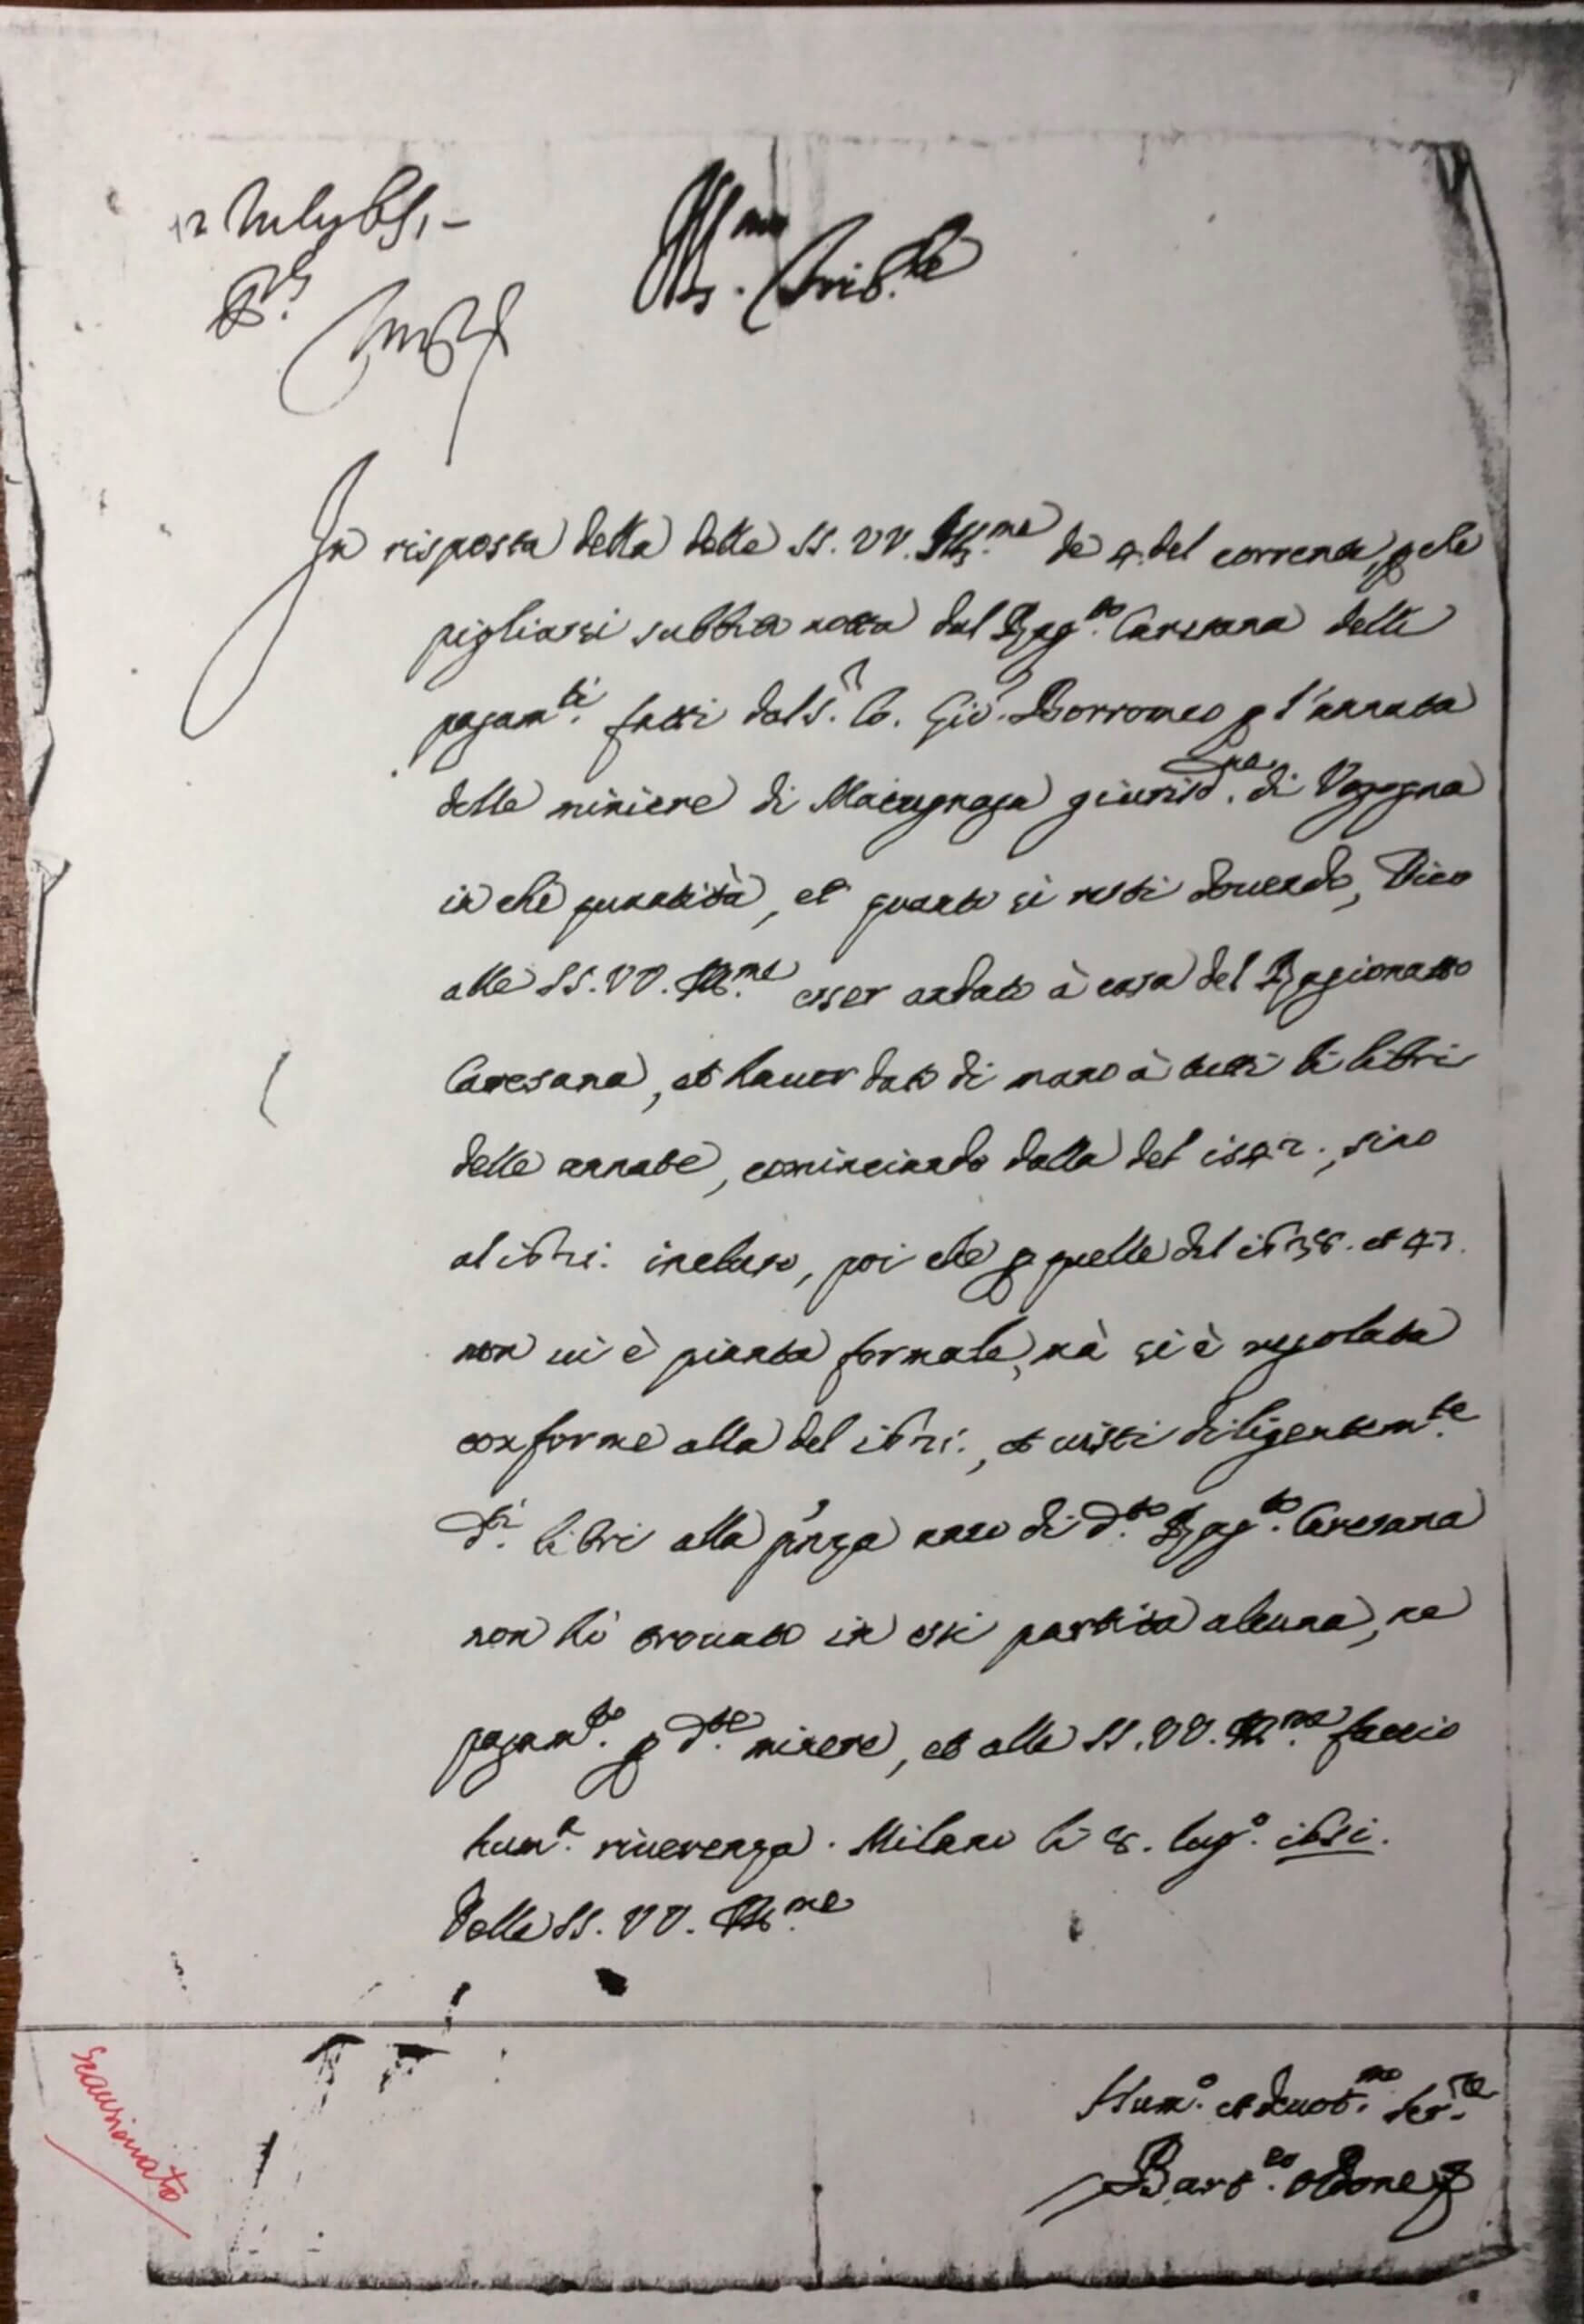 12 July 651 -
Ill.mi
Ill. Trib.le
In risposta della delle SS. VV. Ill.me de 4. del corrente, p che
pigliassi subbita notta dal Rag.to Caresana delli
pagam.ti fatti dal S.r Co. Gio. Borromeo p l'annata
delle miniere di Macugnaga giurisd.ne di Vogogna
in che quantità, et quanto si resti dovendo, Dico
alle SS. VV. Ill.me esser andato à casa del Ragionatto
Caresana, et haver dato di mano à tutti li libri
delle annate, cominciando dalla del sino
al incluso, poi che p quelle del 1638. et 43.
non vi è pianta formale, mà si è regolata
conforme alla del et visti diligentem.te
d.ti libri alla p'nza anco di d.to Rag.to Caresana
non hò trovato in essi partita alcuna, ne
pagam.to p d.te minere, et alle SS. VV. Ill.me faccio
hum.e riverenza. Milano li 8. lug.o 1651.
Delle SS. VV. Ill.me
Hum.o et devot.mo ser.re
Bart.eo
scansionato